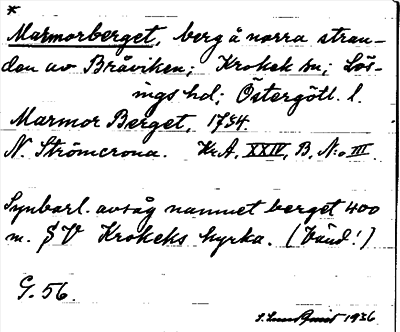 *
Marmorberget, berg å norra stran-
den av Bråviken; Krokek sn; Lös-
ings hd; Östergötl. l.
Marmor Berget, 1754.
N. Strömcrona. Kr.A, XXIV, B, N:o III.
Synbarl. avsåg namnet berget 400
m. S V Krokeks kyrka. (Vänd!)
G. 56.
1936